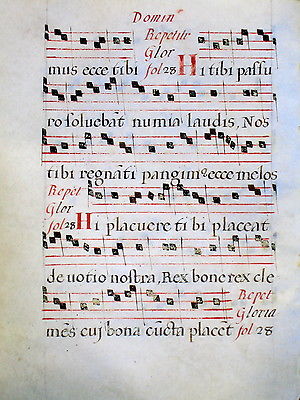 Domin
Repetitr
Glor
mus ecce tibi fol 28 Hi tibi passu
ro soluebāt numia laudis, Nos
tibi regnāti pangim9 ecce melos
Repet
Glor
fol 28 Hi placuere tibi placeat
deuotio nostra, Rex bone rex cle
Repet
Gloria
mēs cui bona cūcta placēt fol 28